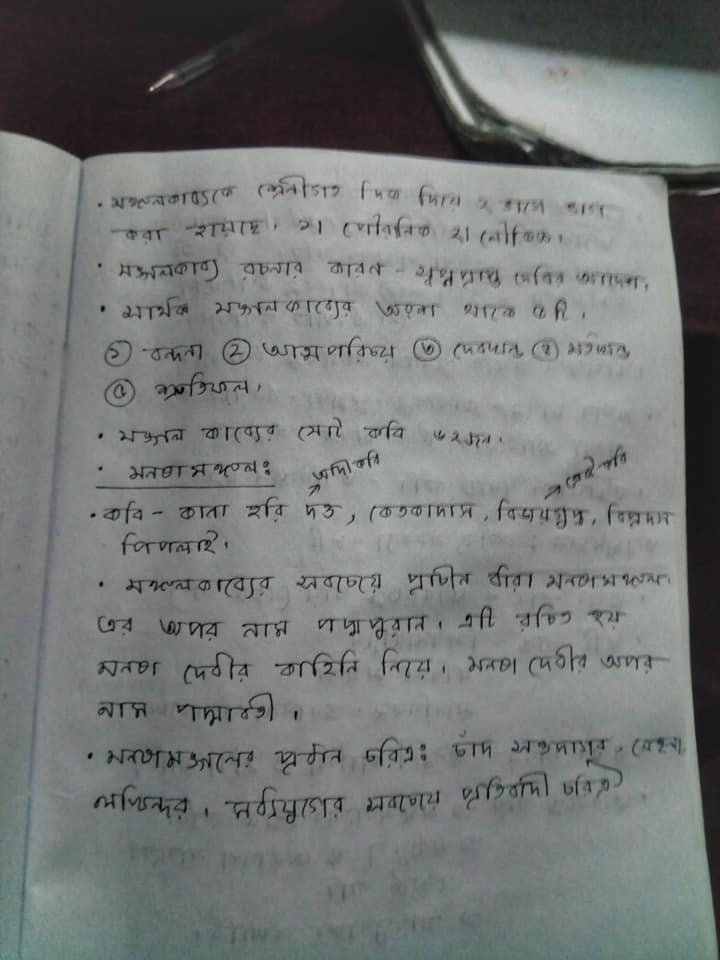 • মঙ্গলকাব্যকে শ্রেনীগত দিক দিয়ে ২ ভাগে ভাগ
করা হয়েছে। ১। পৌরানিক ২। লৌকিক।
• মঙ্গলকাব্য রচনার কারন - স্বপ্নপ্রাপ্ত দেবির আদেশ,
• সার্থক মঙ্গলকাব্যের অংশ থাকে ৫ টি।
① বন্দনা ② আত্মপরিচয় ③ দেবখন্ড ④ মর্তখন্ড
⑤ শ্রুতিফল,
• মঙ্গল কাব্যের মোট কবি ৬২জন.
• মনসামঙ্গল: আদি কবি
শ্রেষ্ঠ কবি
• কবি - কানা হরি দত্ত, কেতকাদাস, বিজয়গুপ্ত, বিপ্রদাস
পিপলাই।
• মঙ্গলকাব্যের সবচেয়ে প্রাচীন ধারা মনসামঙ্গল।
এর অপর নাম পদ্মাপুরান। এটি রচিত হয়
মনসা দেবীর কাহিনি নিয়ে। মনসা দেবীর অপর
নাম পদ্মাবতী।
• মনসামঙ্গলের প্রধান চরিত্র: চাঁদ সওদাগর, বেহুলা,
লখিন্দর। মধ্যযুগের সবচেয়ে প্রতিবাদী চরিত্র